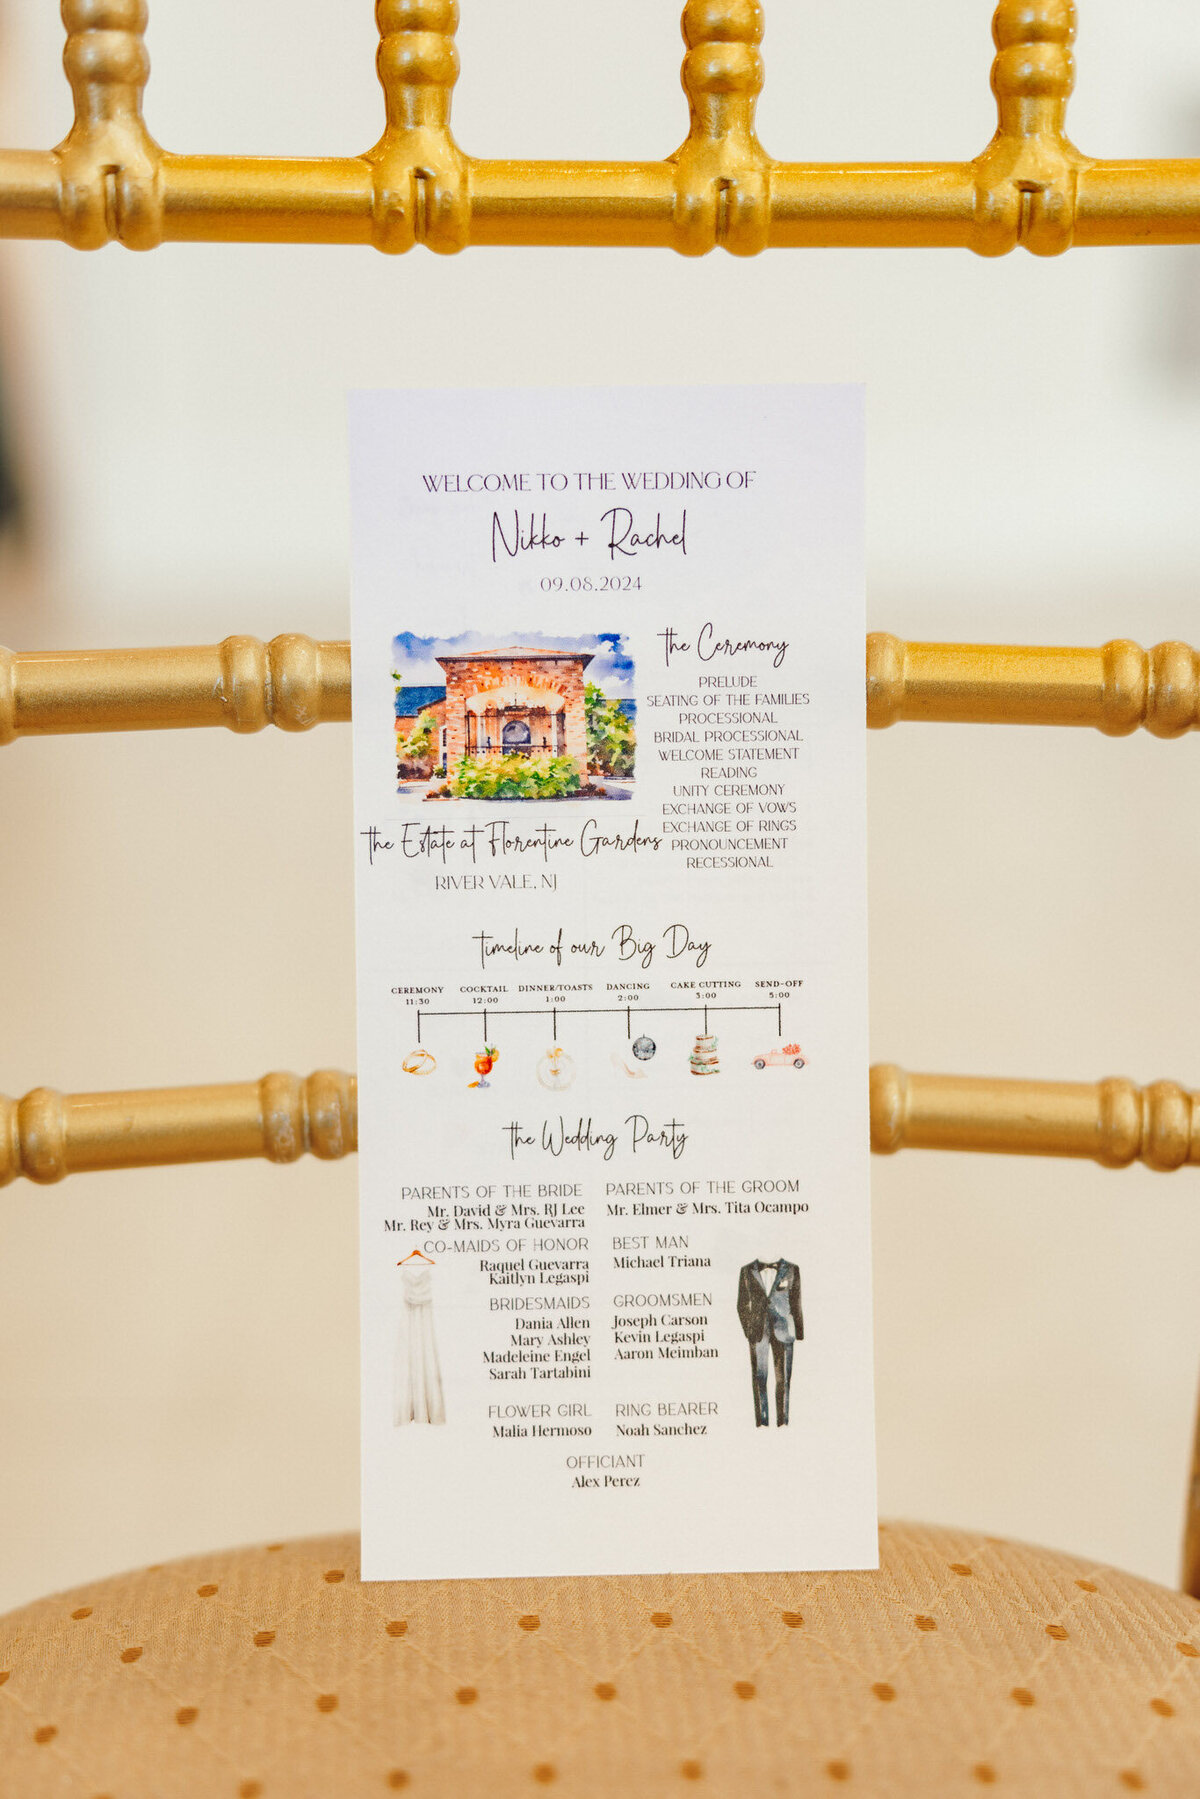 WELCOME TO THE WEDDING OF
Nikko + Rachel
09.08.2024
the Estate at Florentine Gardens
RIVER VALE, NJ
the Ceremony
PRELUDE
SEATING OF THE FAMILIES
PROCESSIONAL
BRIDAL PROCESSIONAL
WELCOME STATEMENT
READING
UNITY CEREMONY
EXCHANGE OF VOWS
EXCHANGE OF RINGS
PRONOUNCEMENT
RECESSIONAL
timeline of our Big Day
CEREMONY
11:30
COCKTAIL
12:00
DINNER/TOASTS
1:00
DANCING
2:00
CAKE CUTTING
3:00
SEND-OFF
5:00
the Wedding Party
PARENTS OF THE BRIDE
Mr. David & Mrs. RJ Lee
Mr. Rey & Mrs. Myra Guevarra
PARENTS OF THE GROOM
Mr. Elmer & Mrs. Tita Ocampo
CO-MAIDS OF HONOR
Raquel Guevarra
Kaitlyn Legaspi
BEST MAN
Michael Triana
BRIDESMAIDS
Dania Allen
Mary Ashley
Madeleine Engel
Sarah Tartabini
GROOMSMEN
Joseph Carson
Kevin Legaspi
Aaron Meimban
FLOWER GIRL
Malia Hermoso
RING BEARER
Noah Sanchez
OFFICIANT
Alex Perez